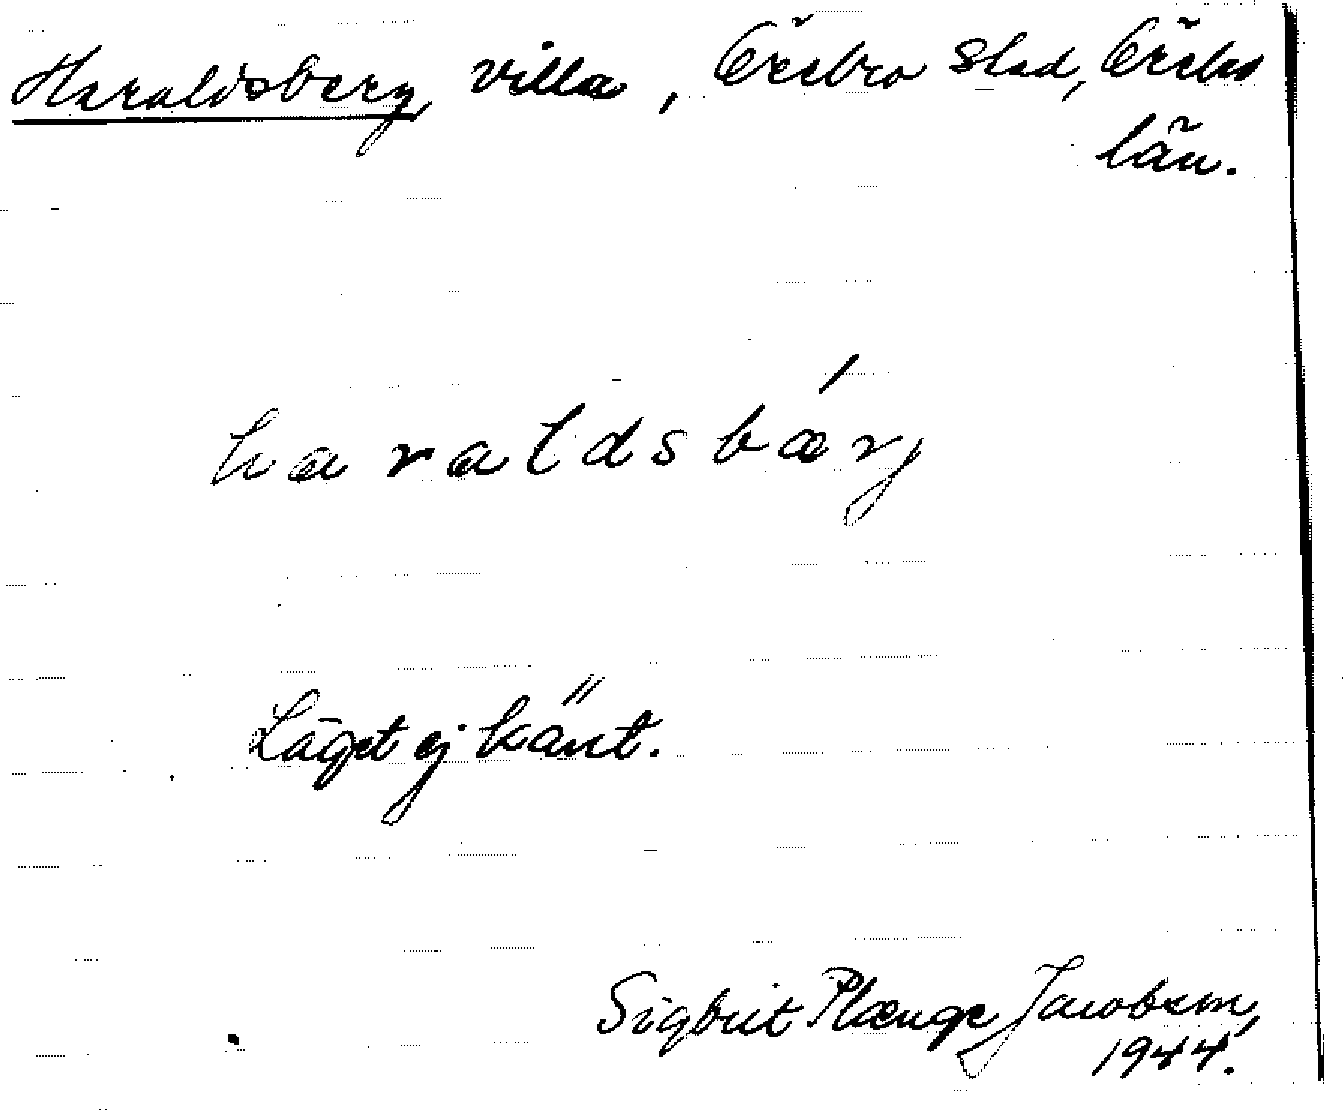 Haraldsberg, villa, Örebro stad, Örebro
län.
haraldsbærj
Läget ej känt.
Sigbrit Plænge Jacobson,
1944.